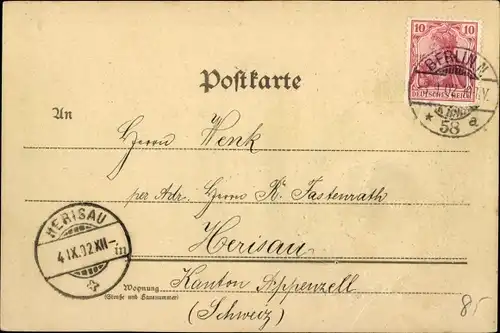 10 10
DEUTSCHES REICH
BERLIN.N.
* 58 a
Postkarte
An
Herrn Wenk
per Adr. Herrn K. Fastenrath
HERISAU
4.IX.02.XII-
in Herisau
Wognung
(Straße und Hausnummer)
Kanton Appenzell
(Schweiz)
85